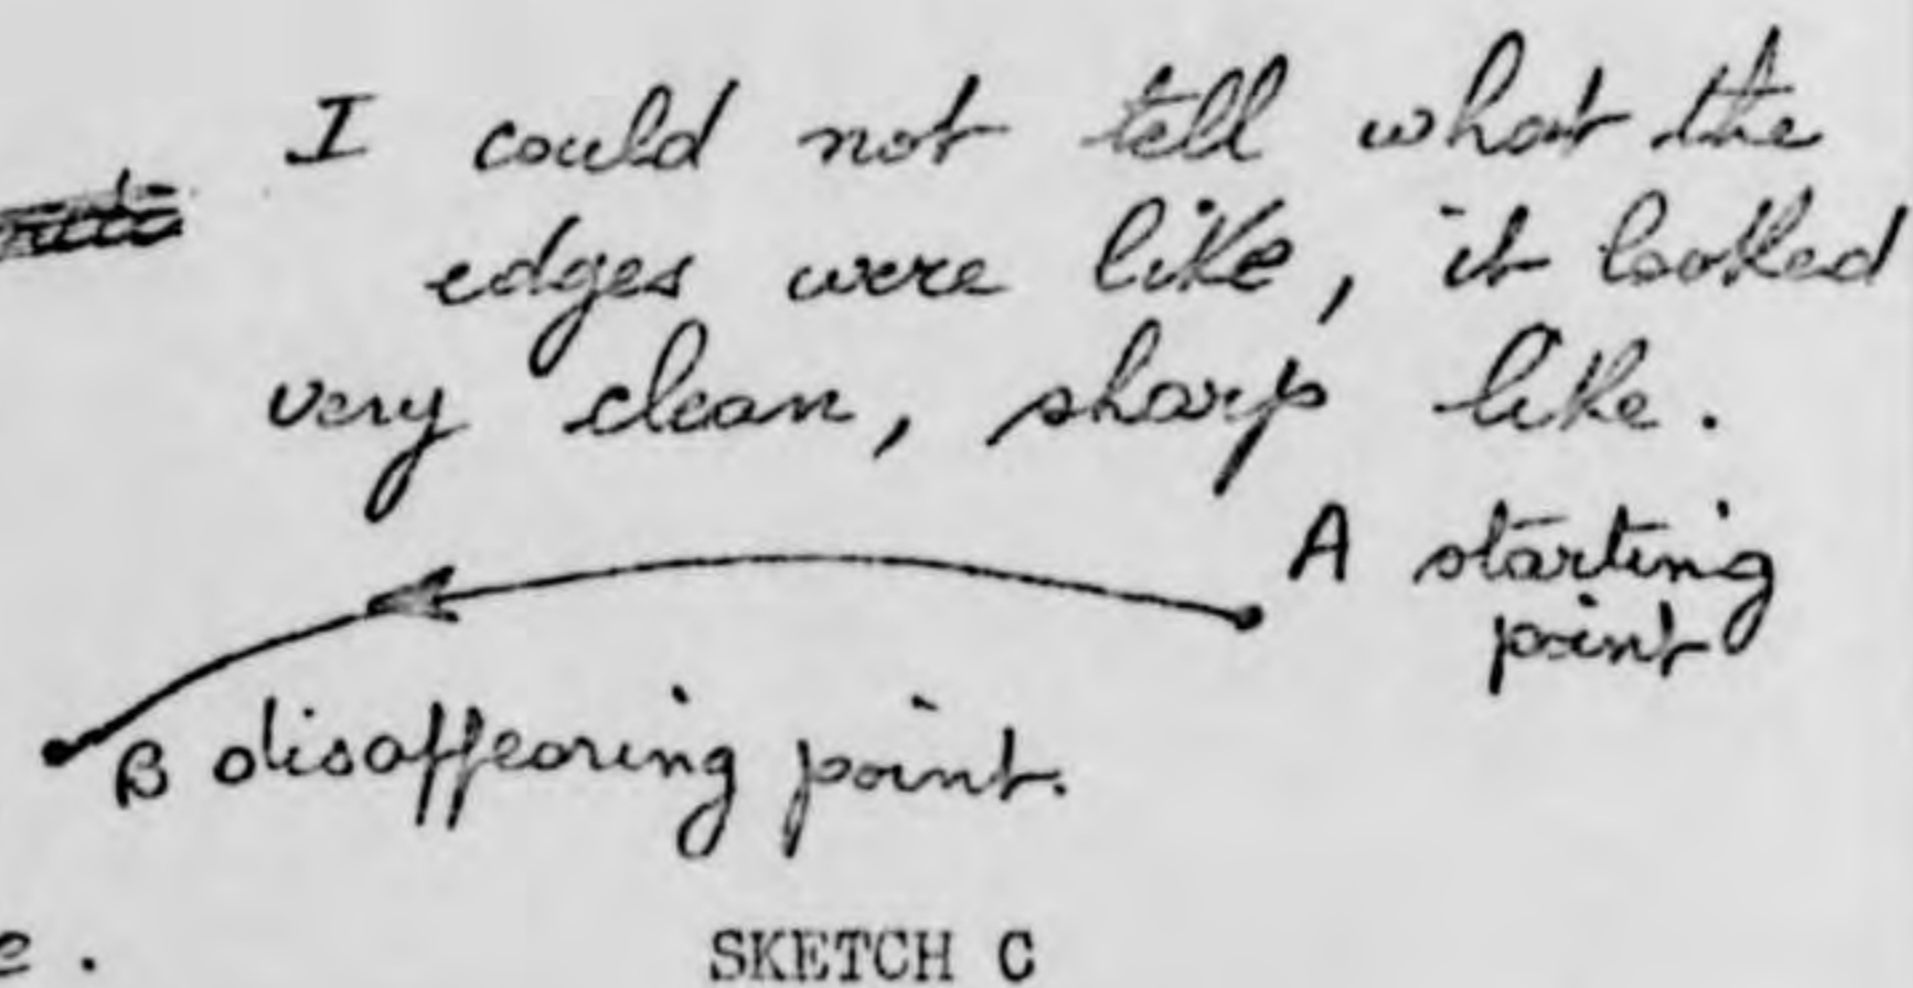 I could not tell what the
edges were like, it looked
very clean, sharp like.
A starting
point
B disappearing point.
e.
SKETCH C